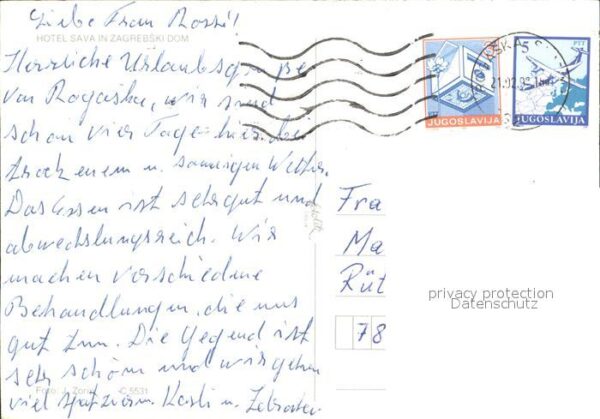 Liebe Frau Rossi!
HOTEL SAVA IN ZAGREBŠKI DOM
Herrliche Urlaubsgrüße
von Rogaška, wir sind
schon vier Tage hier bei
trockenem u. sonnigen Wetter.
Das Essen ist sehr gut und
abwechslungsreich. Wir
machen verschiedene
Behandlungen, die uns
gut tun. Die Gegend ist
sehr schön und wir gehen
viel spazieren
Foto: J. Zorn
C 5531
JUGOSLAVIJA
5 PTT
JUGOSLAVIJA
Fra
Ma
Rüt
78
privacy protection
Datenschutz